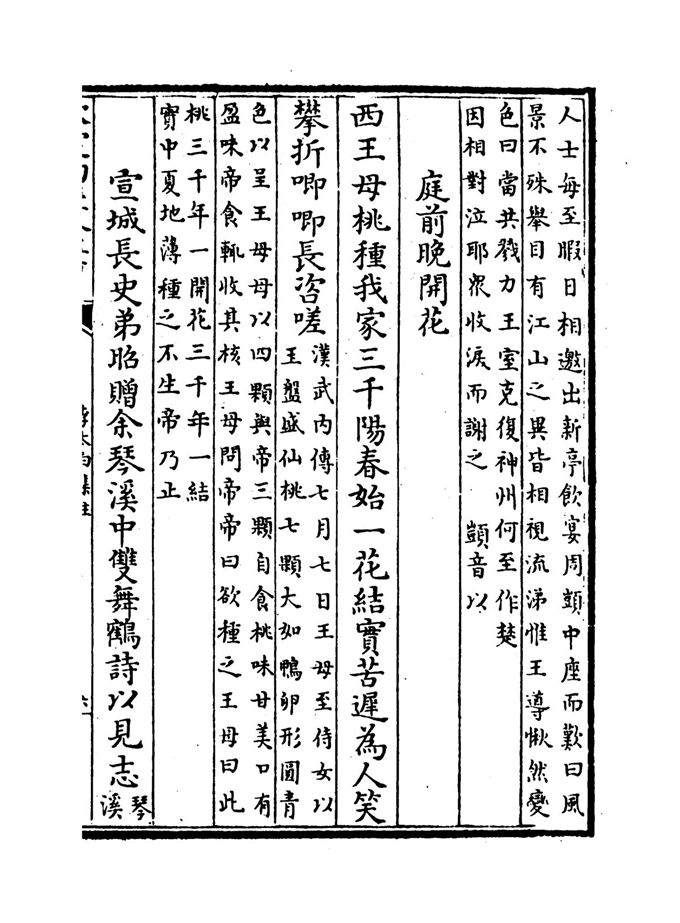 人士每至暇日相邀出新亭飲宴周顗中座而歎曰風
景不殊舉目有江山之異皆相視流涕惟王導愀然變
色曰當共戮力王室克復神州何至作楚
因相對泣耶衆收淚而謝之 顗音以
庭前晚開花
西王母桃種我家三千陽春始一花結實苦遲為人笑
攀折唧唧長咨嗟
漢武内傳七月七日王母至侍女以
玉盤盛仙桃七顆大如鴨卵形圓青
色以呈王母母以四顆與帝三顆自食桃味甘美口有
盈味帝食輒收其核王母問帝帝曰欲種之王母曰此
桃三千年一開花三千年一結
實中夏地薄種之不生帝乃止
宣城長史弟昭贈余琴溪中雙舞鶴詩以見志
琴
溪
李太白集注